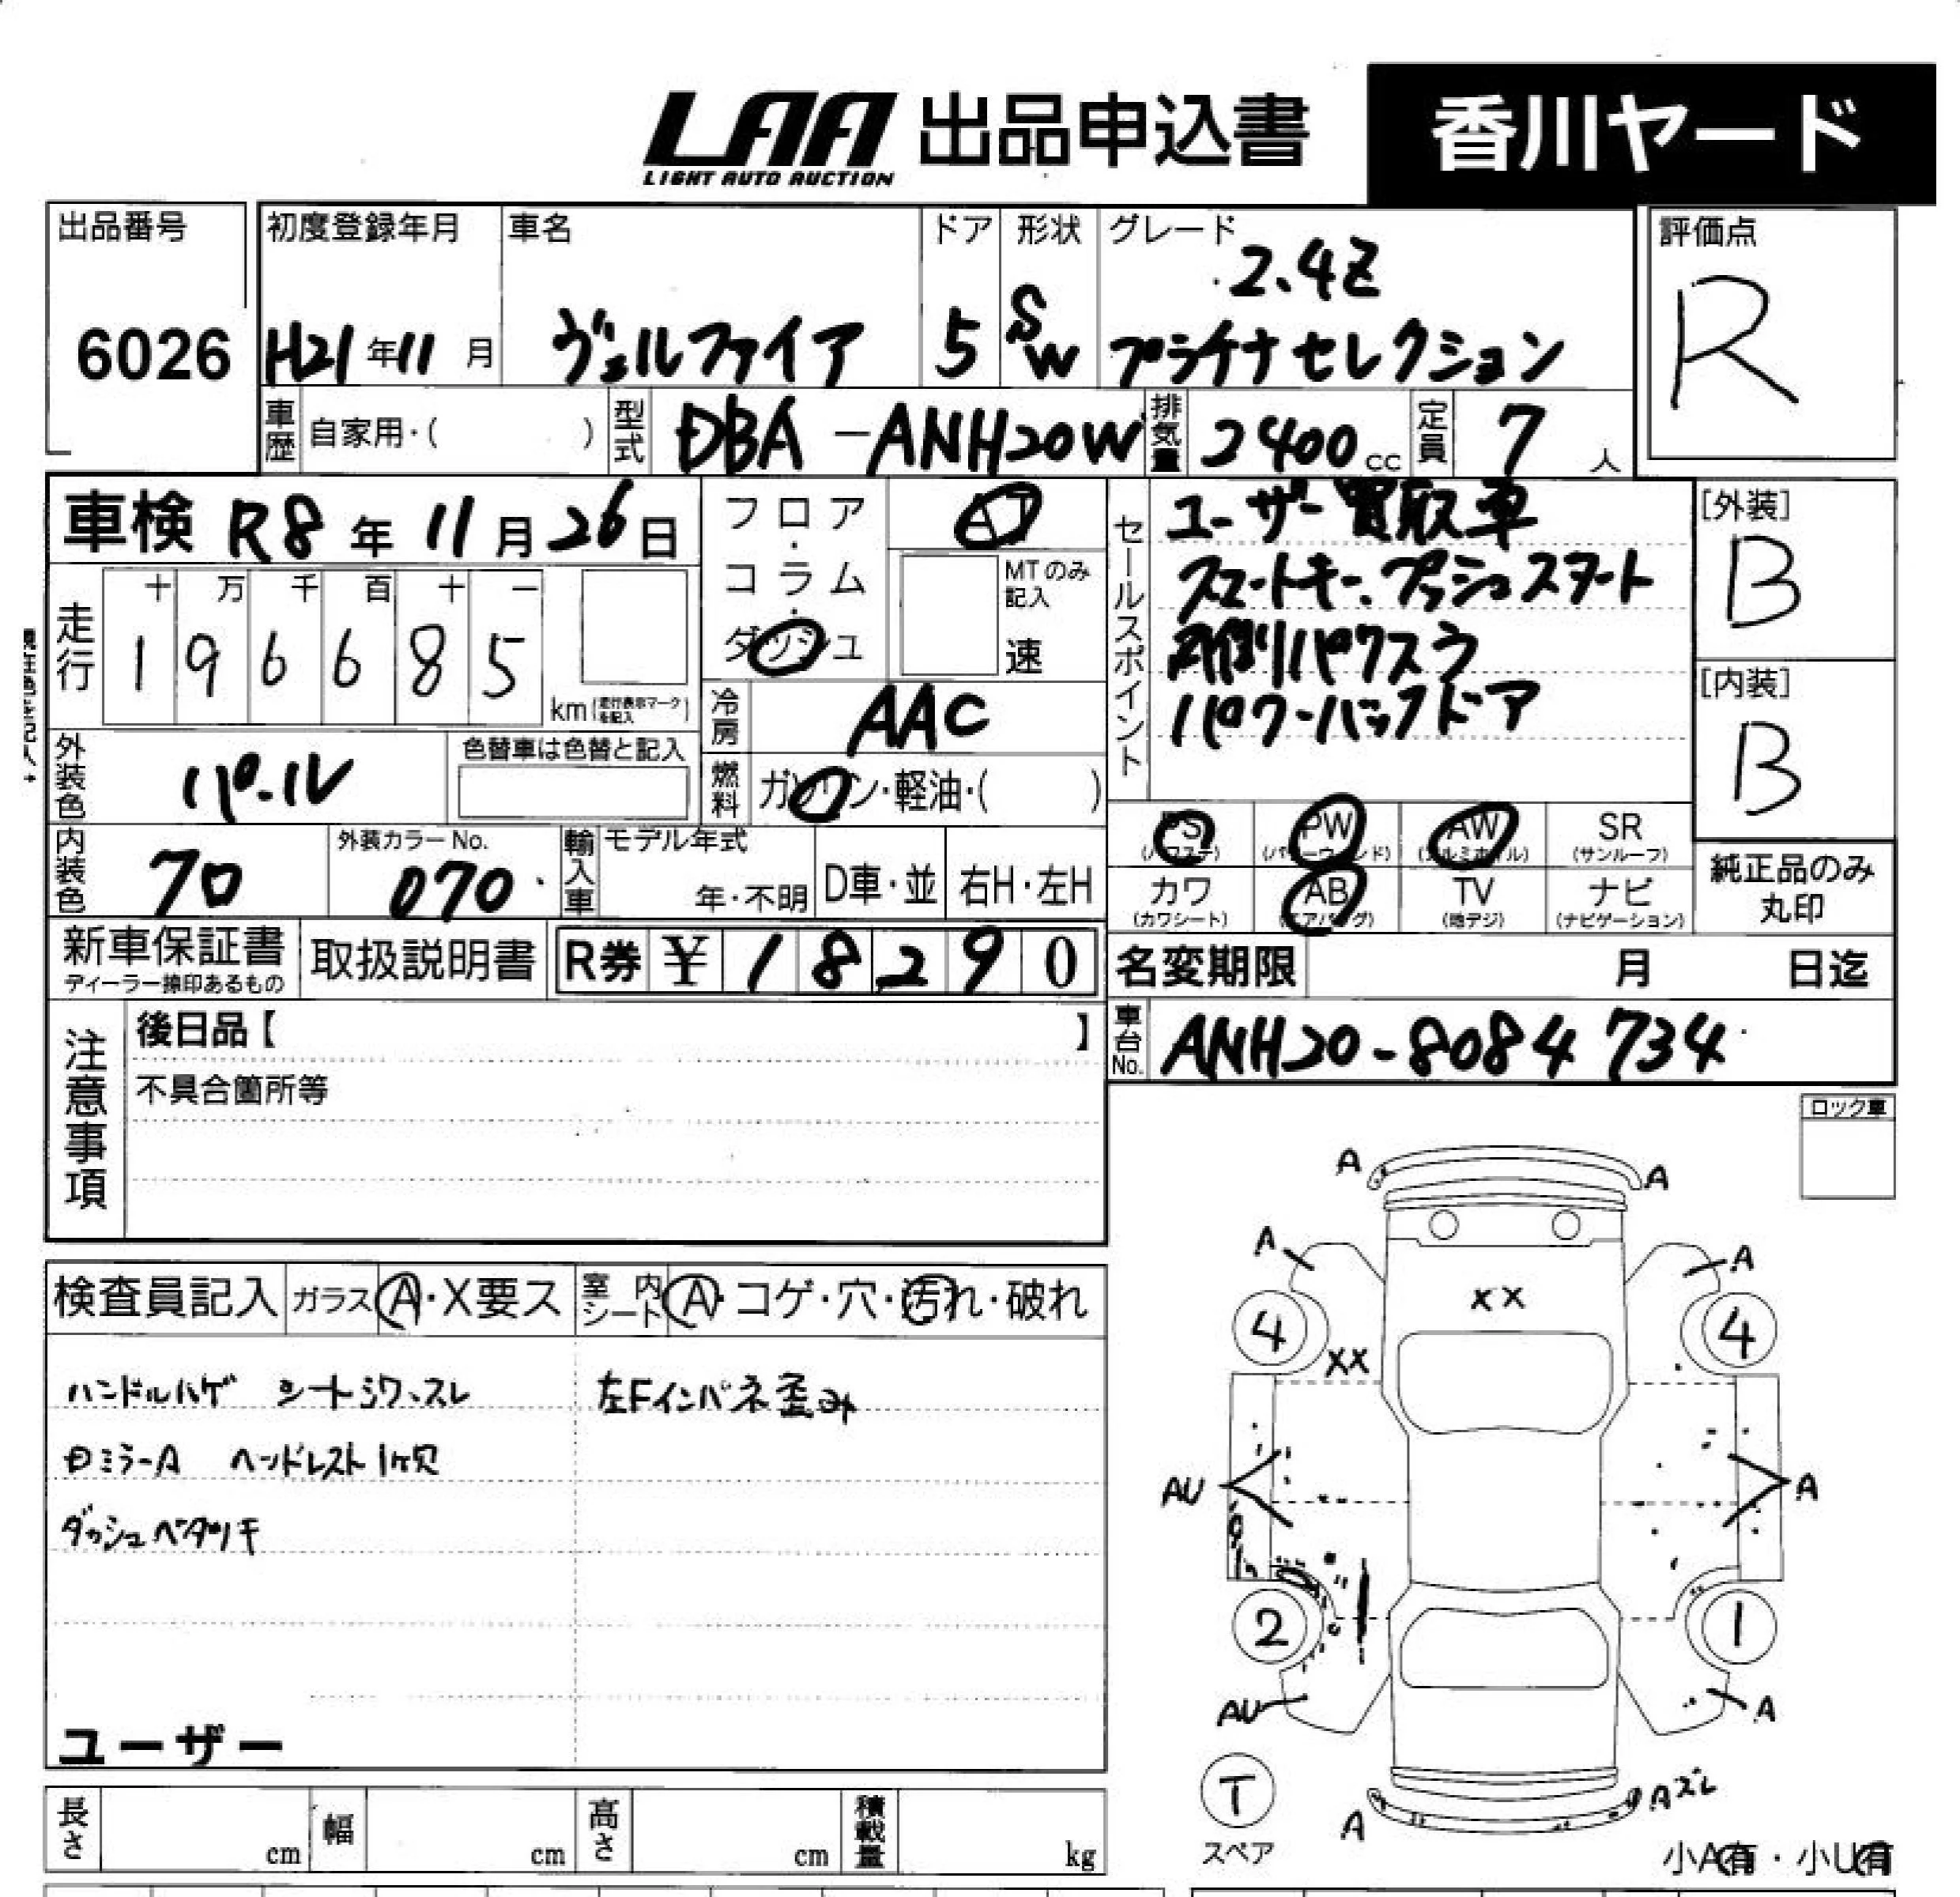 LAA 出品申込書 香川ヤード
LIGHT AUTO AUCTION
出品番号 初度登録年月 車名 ドア 形状 グレード 評価点
2.4Z
6026 H21年11月 ヴェルファイア 5 SW プラチナセレクション R
車歴 自家用・( ) 型式 DBA-ANH20W 排気量 2400cc 定員 7人
車検 R8年11月26日
フロア・コラム・ダッシュ AT
MTのみ記入 速
走行 十 万 千 百 十 一
196685 km (走行表示マークを記入)
セールスポイント
ユーザー買取車
スマートキー、プッシュスタート
両側パワスラ
パワーバックドア
[外装] B
[内装] B
冷房 AAC
外装色 パール 色替車は色替と記入
燃料 ガソリン・軽油・( )
内装色 70 外装カラーNo. 070
輸入車 モデル年式 年・不明 D車・並 右H・左H
PS (パワステ) PW (パワーウィンド) AW (アルミホイル) SR (サンルーフ)
カワ (カワシート) AB (エアバッグ) TV (地デジ) ナビ (ナビゲーション)
純正品のみ丸印
新車保証書 取扱説明書 R券 ¥18290
ディーラー捺印あるもの
名変期限 月 日迄
車台No. ANH20-8084734
注意事項
後日品【 】
不具合箇所等
ロック車
検査員記入 ガラス A・X要ス 室内シート A・コゲ・穴・汚れ・破れ
ハンドルハゲ シートシワ、スレ 左Fインパネ歪み
Dミラー A ヘッドレスト1ヶ欠
ダッシュベタツキ
ユーザー
A A
A A
XX
4 4
XX
AU A
2 1
AU A
T
スペア
A Aズレ
小A有・小U有
長さ cm 幅 cm 高さ cm 積載量 kg